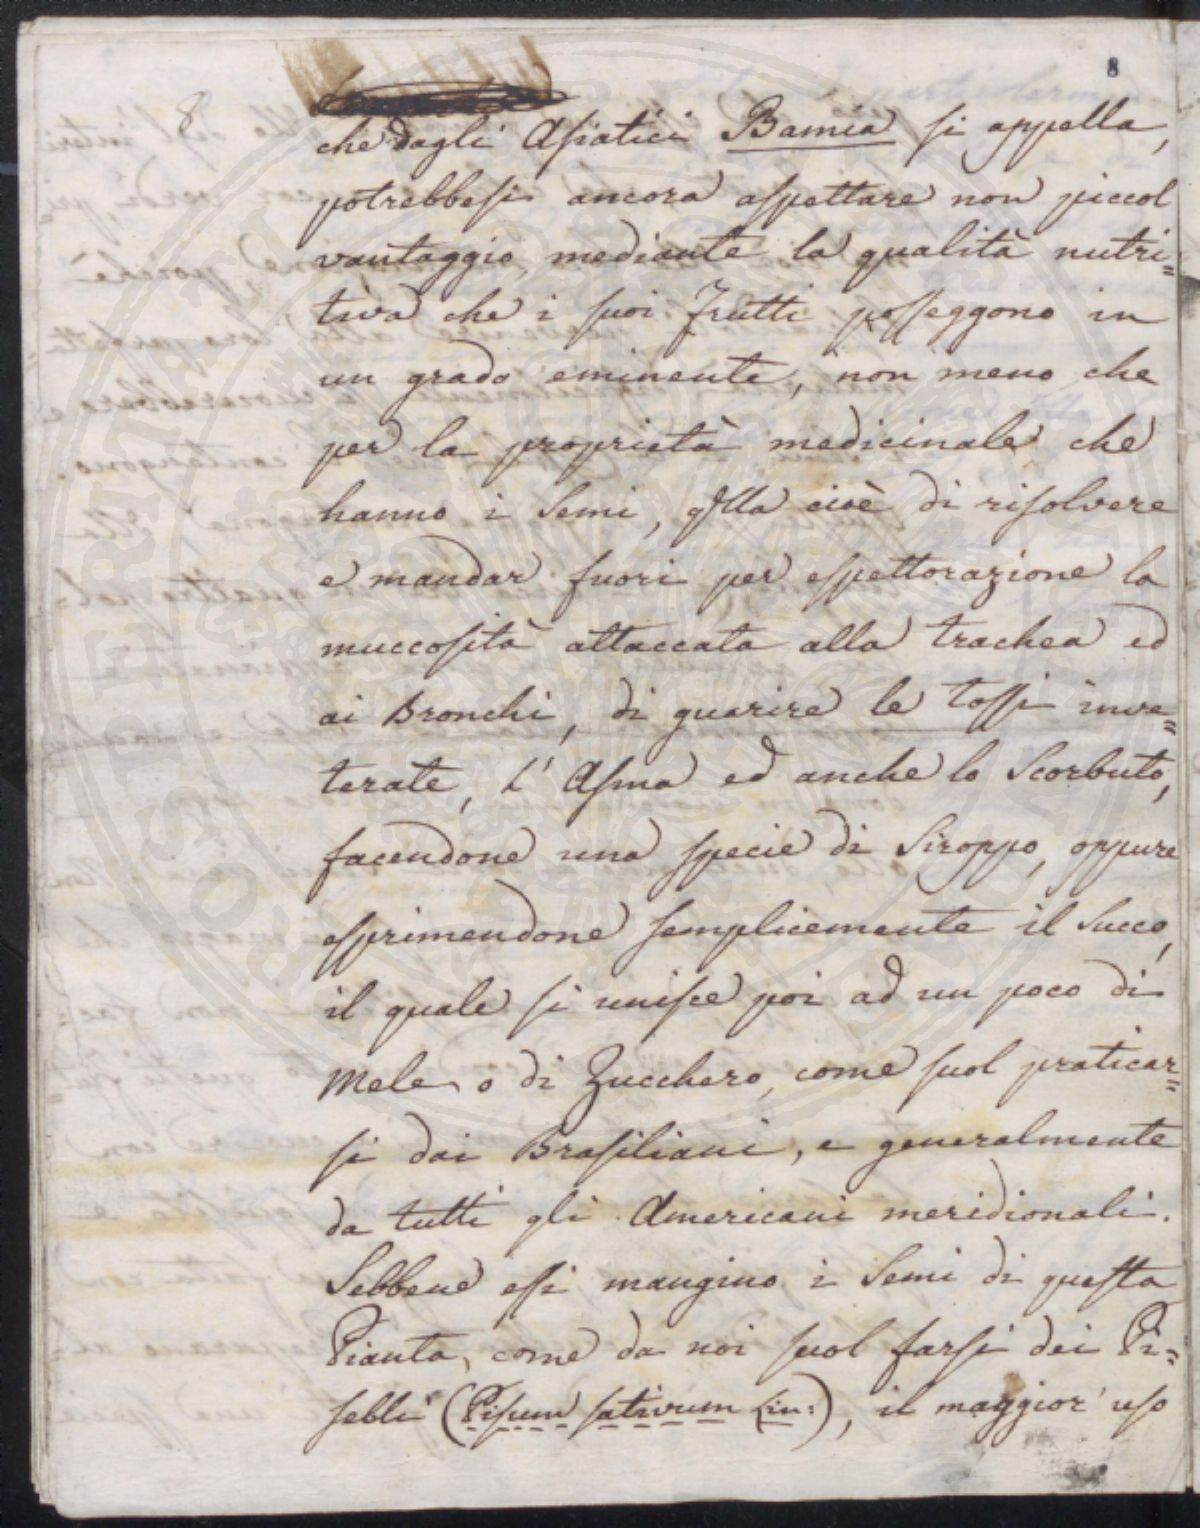 8
che dagli Asiatici Bamia si appella,
potrebbesi ancora aspettare non piccol
vantaggio, mediante la qualità nutri=
tiva che i suoi Frutti posseggono in
un grado eminente, non meno che
per la proprietà medicinale che
hanno i Semi, qlla cioè di risolvere
e mandar fuori per espettorazione la
muccosità attaccata alla trachea ed
ai Bronchi, di guarire le tossi inve=
terate, l'Asma ed anche lo Scorbuto,
facendone una specie di Siroppo, oppure
esprimendone semplicemente il Succo,
il quale si unisce poi ad un poco di
Mele o di Zucchero, come suol praticar=
si dai Brasiliani, e generalmente
da tutti gli Americani meridionali.
Sebbene essi mangino i Semi di questa
Pianta, come da noi suol farsi dei Pi=
selli (Pisum sativum Lin:), il maggior uso